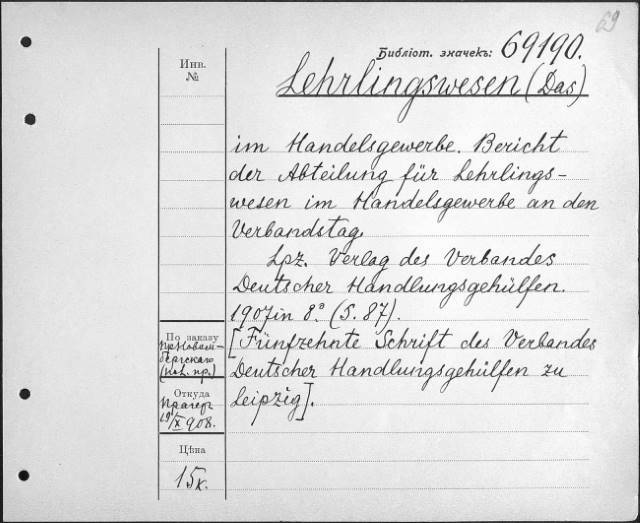 69
Библіот. значекъ: 69190.
Инв.
№
Lehrlingswesen (Das)
im Handelsgewerbe. Bericht
der Abteilung für Lehrlings-
wesen im Handelsgewerbe an den
Verbandstag
Lpz. Verlag des Verbandes
Deutscher Handlungsgehülfen.
1907 in 8.° (S. 87).
[Fünfzehnte Schrift des Verbandes
Deutscher Handlungsgehülfen zu
Leipzig].
По заказу
бергскаго
Откуда
Прагер
19/X 908.
Цѣна
15к.